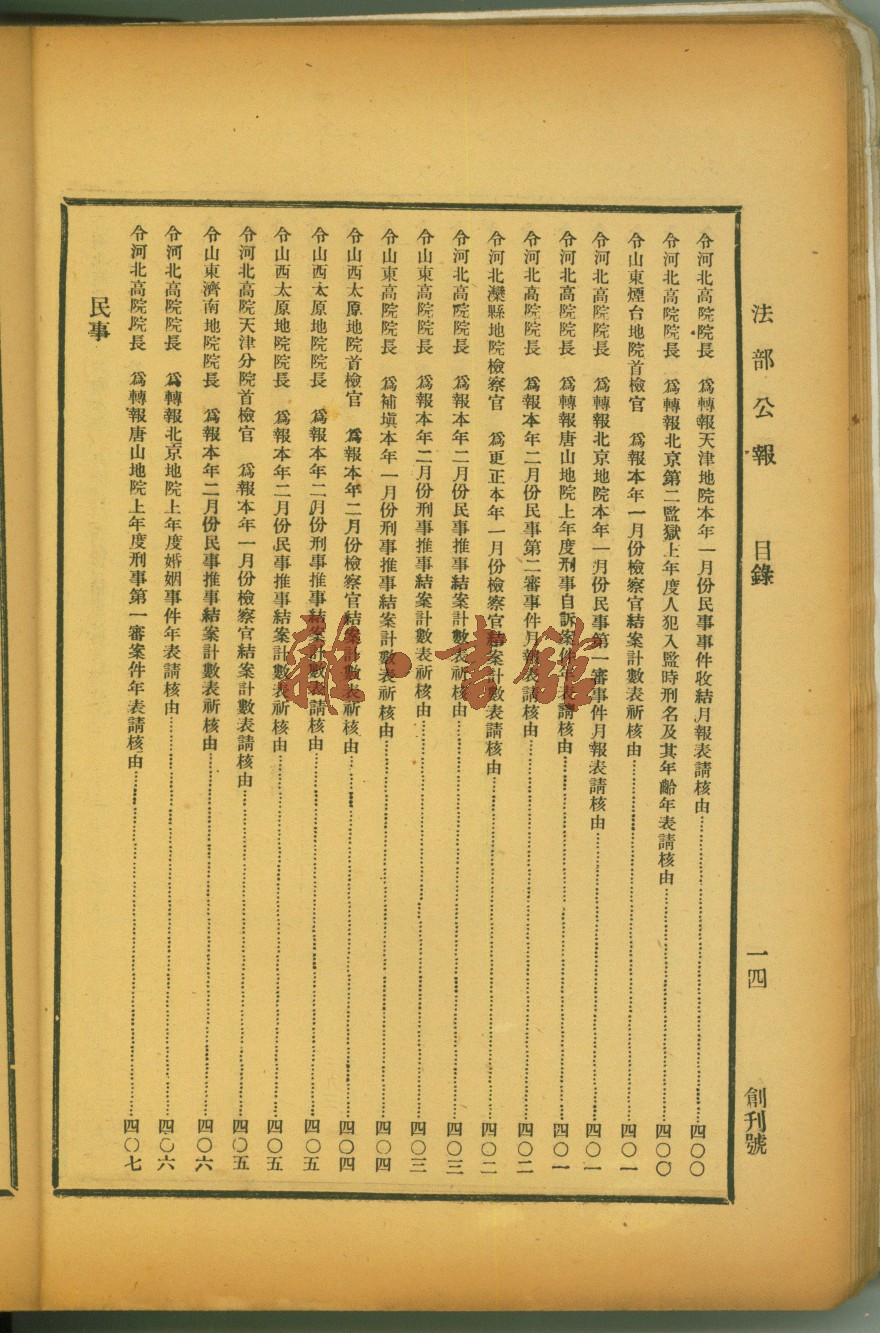 法部公報　目錄　一四　創刊號
令河北高院院長　爲轉報天津地院本年一月份民事事件收結月報表請核由……四〇〇
令河北高院院長　爲轉報北京第二監獄上年度人犯入監時刑名及其年齡年表請核由……四〇〇
令山東煙台地院首檢官　爲報本年一月份檢察官結案計數表祈核由……四〇一
令河北高院院長　爲轉報北京地院本年一月份民事第一審事件月報表請核由……四〇一
令河北高院院長　爲轉報唐山地院上年度刑事自訴案件年表請核由……四〇一
令河北高院院長　爲報本年二月份民事第二審事件月報表請核由……四〇二
令河北灤縣地院檢察官　爲更正本年一月份檢察官結案計數表請核由……四〇二
令河北高院院長　爲報本年二月份民事推事結案計數表祈核由……四〇三
令山東高院院長　爲報本年二月份刑事推事結案計數表祈核由……四〇三
令山東高院院長　爲補塡本年一月份刑事推事結案計數表祈核由……四〇四
令山西太原地院首檢官　爲報本年二月份檢察官結案計數表祈核由……四〇四
令山西太原地院院長　爲報本年二月份刑事推事結案計數表請核由……四〇五
令山西太原地院院長　爲報本年二月份民事推事結案計數表祈核由……四〇五
令河北高院天津分院首檢官　爲報本年一月份檢察官結案計數表請核由……四〇五
令山東濟南地院院長　爲報本年二月份民事推事結案計數表祈核由……四〇六
令河北高院院長　爲轉報北京地院上年度婚姻事件年表請核由……四〇六
令河北高院院長　爲轉報唐山地院上年度刑事第一審案件年表請核由……四〇七
民事
雜·書館